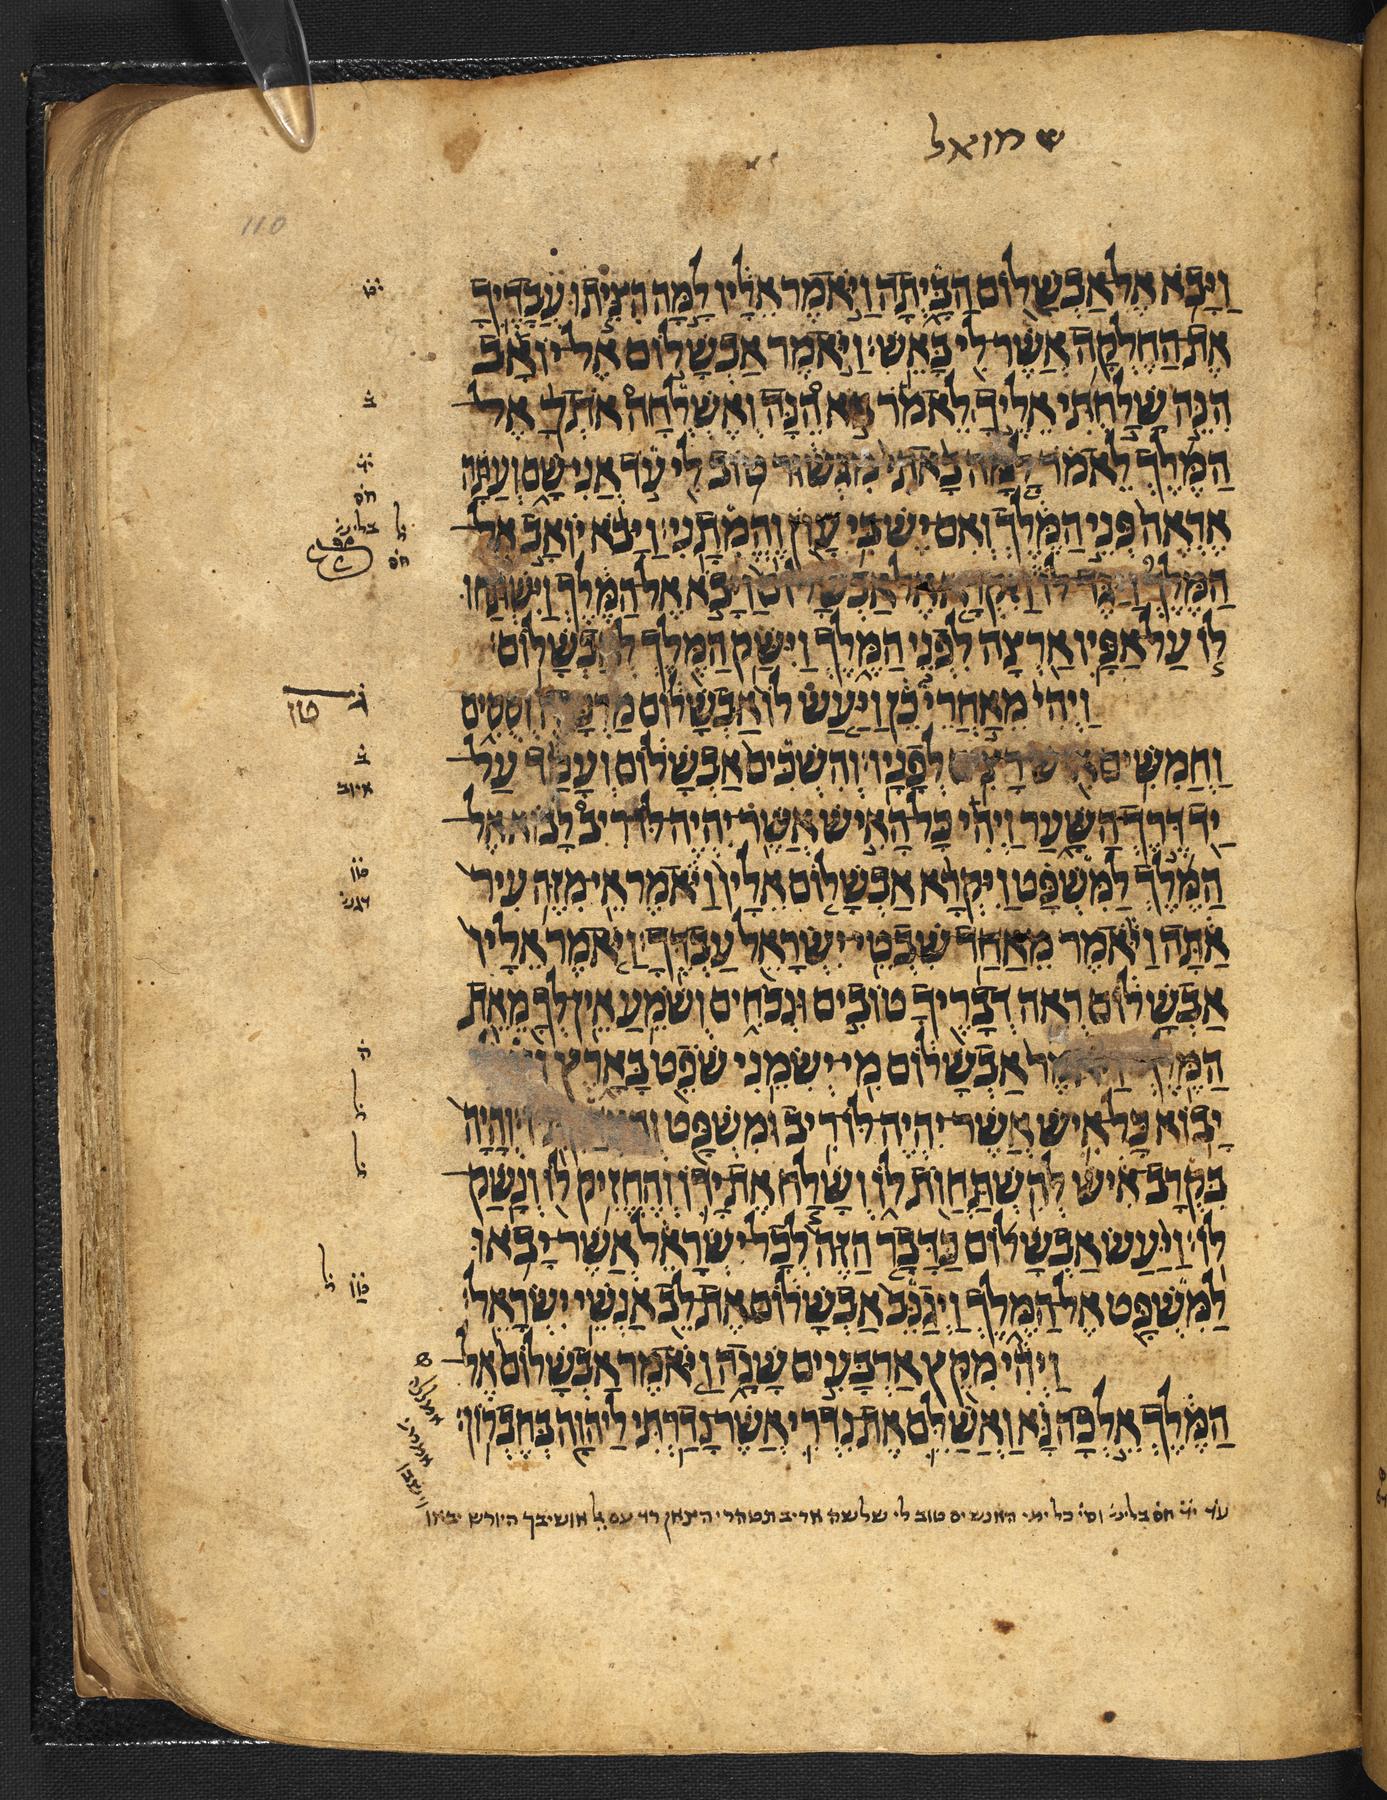 שמואל
110
וַיָּבֹא אֶל אַבְשָׁלוֹם הַבָּיְתָה וַיֹּאמֶר אֵלָיו לָמָּה הִצִּיתוּ עֲבָדֶיךָ
אֶת הַחֶלְקָה אֲשֶׁר לִי בָּאֵשׁ׃ וַיֹּאמֶר אַבְשָׁלוֹם אֶל יוֹאָב
הִנֵּה שָׁלַחְתִּי אֵלֶיךָ לֵאמֹר בֹּא הֵנָּה וְאֶשְׁלְחָה אֹתְךָ אֶל
הַמֶּלֶךְ לֵאמֹר לָמָּה בָּאתִי מִגְּשׁוּר טוֹב לִי עֹד אֲנִי שָׁם וְעַתָּה
אֶרְאֶה פְּנֵי הַמֶּלֶךְ וְאִם יֶשׁ בִּי עָוֹן וֶהֱמִתָנִי׃ וַיָּבֹא יוֹאָב אֶל
הַמֶּלֶךְ וַיַּגֶּד לוֹ וַיִּקְרָא אֶל אַבְשָׁלוֹם וַיָּבֹא אֶל הַמֶּלֶךְ וַיִּשְׁתַּחוּ
לוֹ עַל אַפָּיו אַרְצָה לִפְנֵי הַמֶּלֶךְ וַיִּשַּׁק הַמֶּלֶךְ לְאַבְשָׁלוֹם׃
וַיְהִי מֵאַחֲרֵי כֵן וַיַּעַשׂ לוֹ אַבְשָׁלוֹם מֶרְכָּבָה וְסֻסִים
וַחֲמִשִּׁים אִישׁ רָצִים לְפָנָיו׃ וְהִשְׁכִּים אַבְשָׁלוֹם וְעָמַד עַל
יַד דֶּרֶךְ הַשָּׁעַר וַיְהִי כָּל הָאִישׁ אֲשֶׁר יִהְיֶה לּוֹ רִיב לָבוֹא אֶל
הַמֶּלֶךְ לַמִּשְׁפָּט וַיִּקְרָא אַבְשָׁלוֹם אֵלָיו וַיֹּאמֶר אֵי מִזֶּה עִיר
אַתָּה וַיֹּאמֶר מֵאַחַד שִׁבְטֵי יִשְׂרָאֵל עַבְדֶּךָ׃ וַיֹּאמֶר אֵלָיו
אַבְשָׁלוֹם רְאֵה דְבָרֶיךָ טוֹבִים וּנְכֹחִים וְשֹׁמֵעַ אֵין לְךָ מֵאֵת
הַמֶּלֶךְ׃ וַיֹּאמֶר אַבְשָׁלוֹם מִי יְשִׂמֵנִי שֹׁפֵט בָּאָרֶץ וְעָלַי
יָבוֹא כָּל אִישׁ אֲשֶׁר יִהְיֶה לּוֹ רִיב וּמִשְׁפָּט וְהִצְדַּקְתִּיו׃ וְהָיָה
בִּקְרָב אִישׁ לְהִשְׁתַּחֲוֹת לוֹ וְשָׁלַח אֶת יָדוֹ וְהֶחֱזִיק לוֹ וְנָשַׁק
לוֹ׃ וַיַּעַשׂ אַבְשָׁלוֹם כַּדָּבָר הַזֶּה לְכָל יִשְׂרָאֵל אֲשֶׁר יָבֹאוּ
לַמִּשְׁפָּט אֶל הַמֶּלֶךְ וַיְגַנֵּב אַבְשָׁלוֹם אֶת לֵב אַנְשֵׁי יִשְׂרָאֵל׃
וַיְהִי מִקֵּץ אַרְבָּעִים שָׁנָה וַיֹּאמֶר אַבְשָׁלוֹם אֶל
הַמֶּלֶךְ אֵלְכָה נָּא וַאֲשַׁלֵּם אֶת נִדְרִי אֲשֶׁר נָדַרְתִּי לַיהוָה בְּחֶבְרוֹן׃
עד יד חס בלינ וסי כל ימי האנשים טוב לי שלשה אריב תטהרי היתאן רד עם אושיבך היורש יבאו